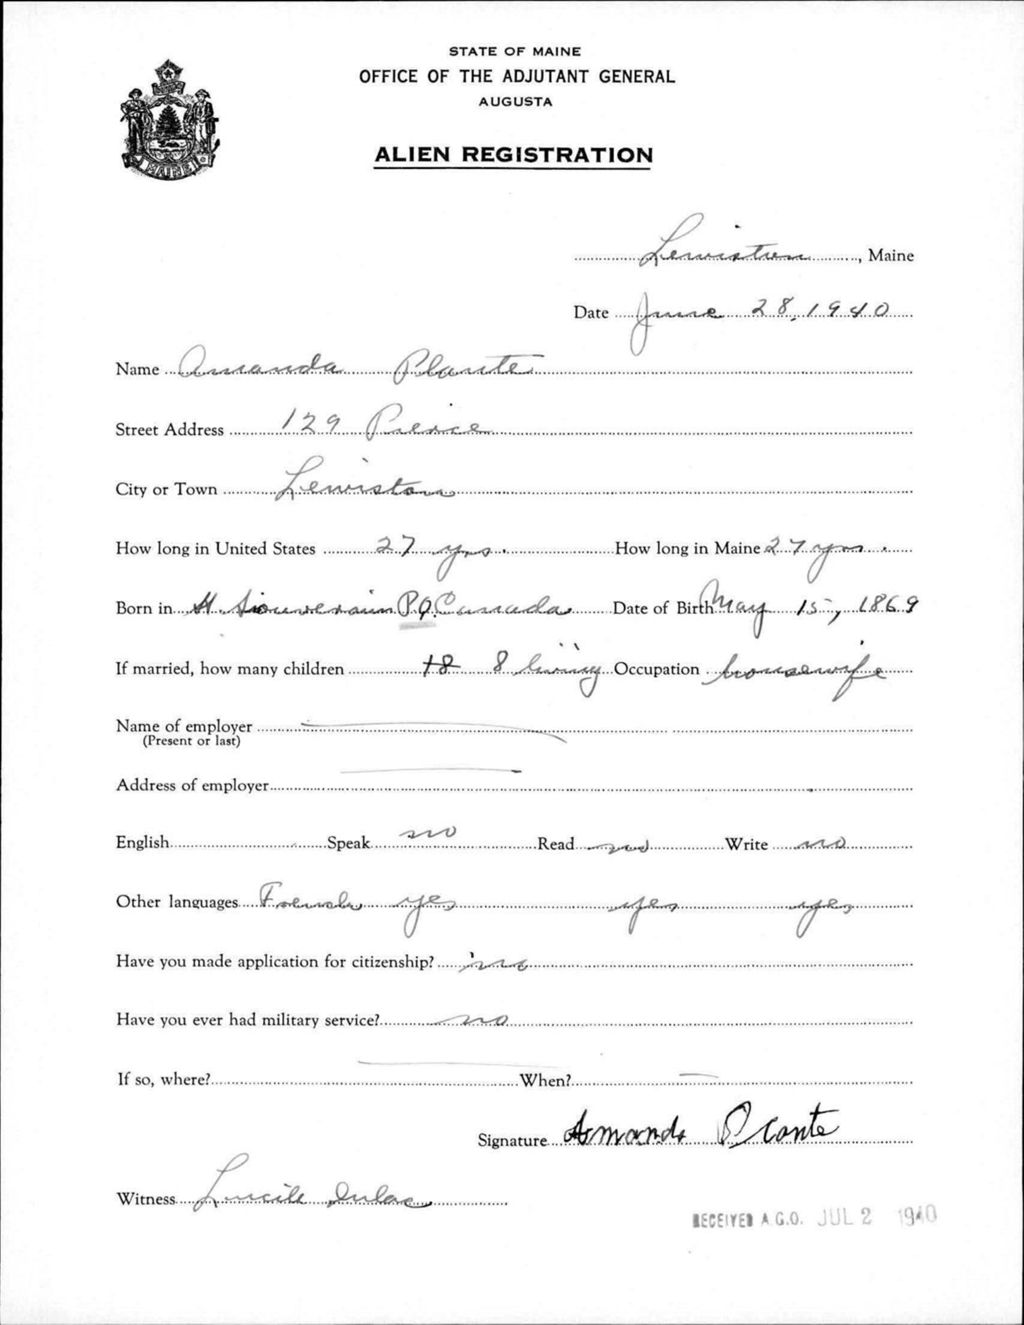 STATE OF MAINE
OFFICE OF THE ADJUTANT GENERAL
AUGUSTA
ALIEN REGISTRATION
MAINE
Lewiston, Maine
Date June 28, 1940
Name Amanda Plante
Street Address 129 Pierce
City or Town Lewiston
How long in United States 27 yrs. How long in Maine 27 yrs.
Born in St. P.Q. Canada Date of Birth May 15, 1869
If married, how many children 8 living Occupation housewife
Name of employer
(Present or last)
Address of employer
English Speak no Read no Write no
Other languages French yes yes yes
Have you made application for citizenship? no
Have you ever had military service? no
If so, where? When?
Signature Armanda Plante
Witness Lucile Dulac
RECEIVED A.G.O. JUL 2 1940